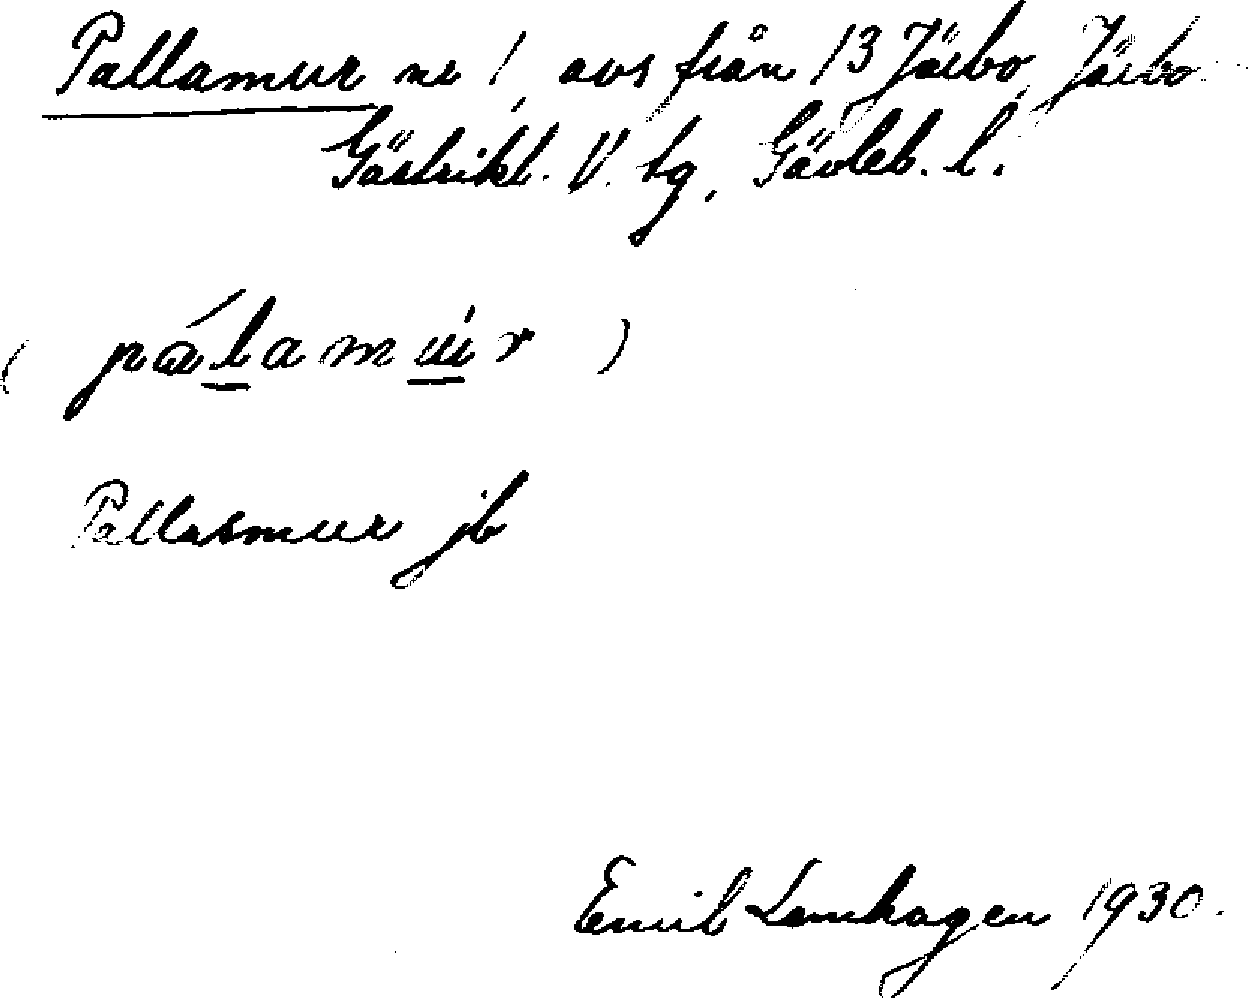 Pallamur nr 1, avs från 13 Järbo, Järbo
Gästrikl. V. tg, Gävleb. l.
( pálamúr )
Pallasmur jb
Emil Lemhagen 1930.